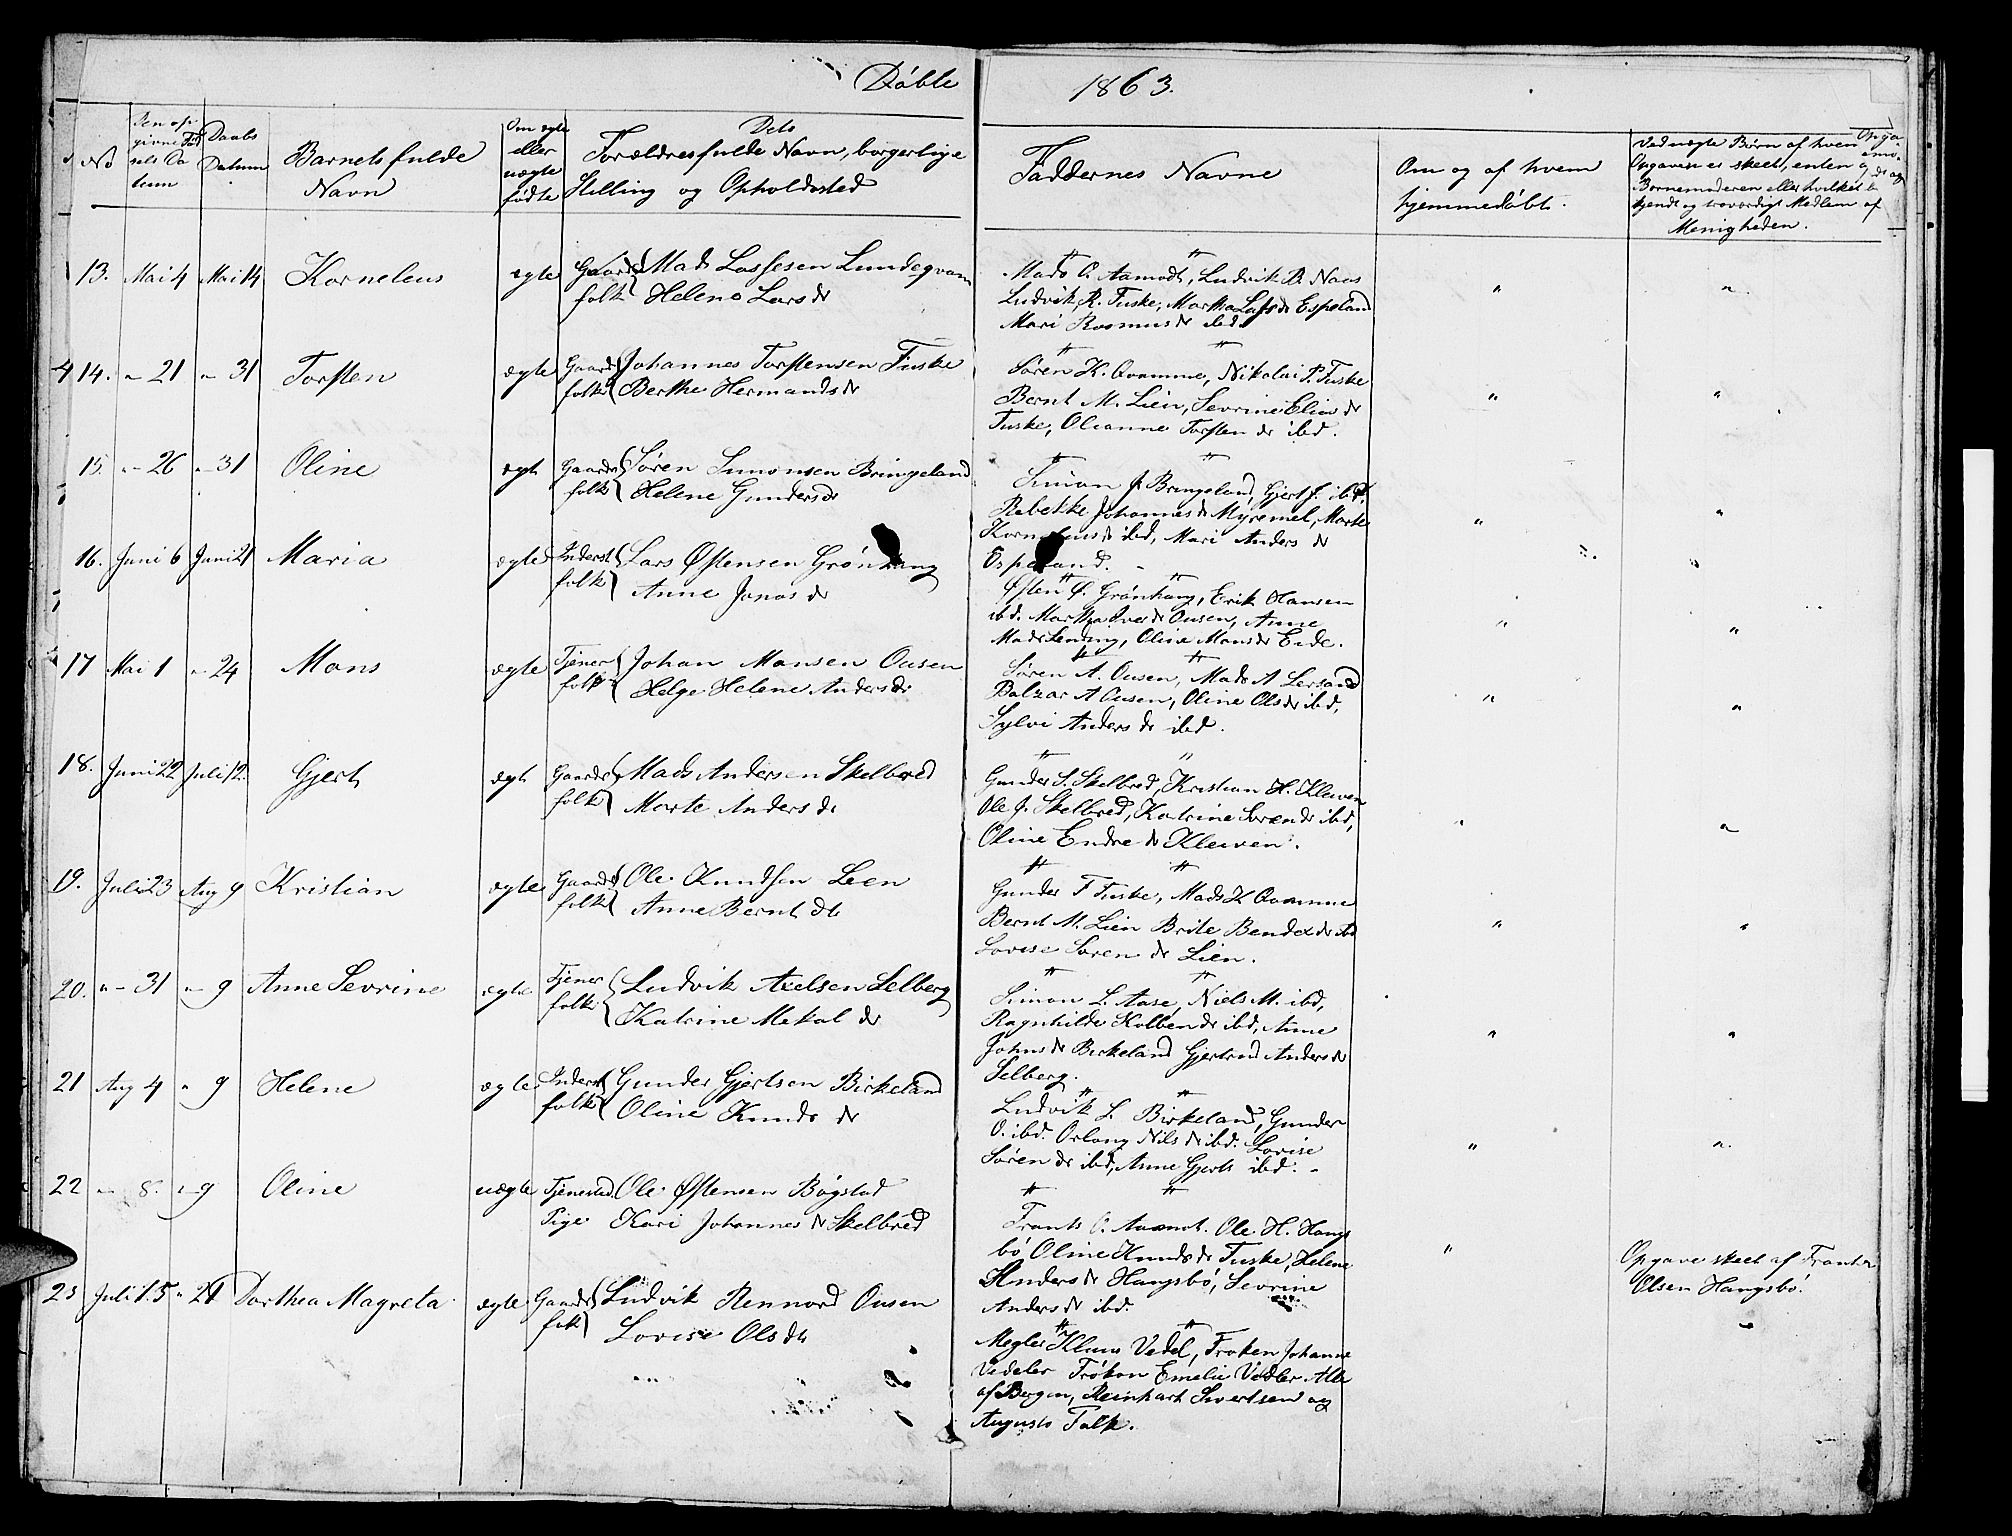 Døbte 1863.
No
Den opgivne Fødsels Datum
Daabs Datum
Barnets fulde Navn
Om ægte eller uægte fødte
Dets Forældres fulde Navn, borgerlige Stilling og Opholdssted
Faddernes Navne
Om og af hvem hjemmedøbt.
Ved uægte Børn af hvem Opgaven er skeet, enten
Barnemoderen eller hvilket
kjendt og troværdigt Medlem af
Menigheden.
13. Mai 4 Mai 14 Kornelius ægte Gaard Mads Lassesen Lundeqvam
folk Helene Larsdr
Mads O. Aamodt, Ludvik B. Naas
Ludvik R. Tuske, Martha Lassdr Espeland
Mari Rasmusdr ibd.
14. " 21 " 31 Torsten ægte Gaard Johannes Torstensen Tuske
folk Berthe Hermandsdr
Søren K. Qvamme, Nikolai P. Tuske
Bernt M. Lien, Sevrine Eliasdr
Tuske, Olianne Torstendr ibd.
15. " 26 " 31 Oline ægt Gaard Søren Simonsen Bringeland
folk Helene Gundersdr
Simon J. Bringeland, Gjert J. ibd.
Rebekke Johannesdr Myremel, Marte
Korneliusdr ibd, Mari Andersdr
Espeland.
16. Juni 6 Juni 21 Maria ægte Inderst Lars Østensen Grønhaug
folk Anne Jonasdr
Østen Ø. Grønhaug, Erik Hansen
ibd. Martha Iversdr Ousen, Anne
Mads Lening, Oline Monsdr Eide.
17 Mai 1 " 24 Mons ægte Tjener Johan Monsen Ousen
folk Helge Helene Andersdr
Søren A. Ousen, Mads A Lersand
Balzar A Ousen, Oline Olsdr ibd,
Sylvi Andersdr ibd.
18. Juni 22 Juli 12. Gjert ægt Gaard Mads Andersen Skelbred
folk Marte Andersdr
Gunder S. Skelbred, Kristian H. Kleiven
Ole J. Skelbred, Katrine Sørendr ibd,
Oline Endredr Kleiven.
19. Juli 23 Aug 9 Kristian ægte Gaard Ole Knudsen Leen
folk Anne Berntdtr
Gunder T Tuske, Mads K Qvamme
Bernt M. Lien Brite Bendixdr ibd
Lovise Sørendr Lien.
20. " 31 " 9 Anne Sevrine ægte Tjener Ludvik Axelsen Selberg
folk Katrine Mekaldr
Simon L. Aase, Niels M. ibd,
Ragnhilde Kolbendr ibd, Anne
Johnsdr Birkeland Gjertrud Andersdr
Selberg.
21 Aug 4 " 9 Helene ægte Inderst Gunder Gjertsen Birkeland
folk Oline Knudsdr
Ludvik L. Birkeland, Gunder
O. ibd. Orlaug Nilsdr ibd. Lovise
Sørendr ibd, Anne Gjerts ibd.
22 " 8. " 9 Oline uægte Tjenested Ole Østensen Bøgstad
Pige Kari Johannesdr Skelbred
Frants O. Aamot. Ole H. Haugs
bø, Oline Knudsdr Tuske, Helene
Andersdr Haugsbø, Sevrine
Andersdr ibd.
Opgave skeet af Frants
Olsen Haugsbø.
23 Juli 15 " 21 Dorthea Magreta ægte Gaard Ludvik Rennord Ousen
folk Lovise Olsdtr
Megler Klaus Vedel, Frøken Johanne
Vedeler Frøken Emelie Vedeler Alle
af Bergen, Reinhart Sivertsen og
Augusto Falk.